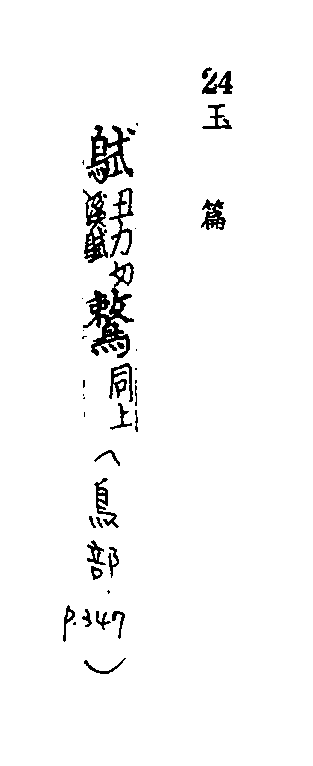 24 玉篇
丑力切
鷘同上(鳥部.p.347)